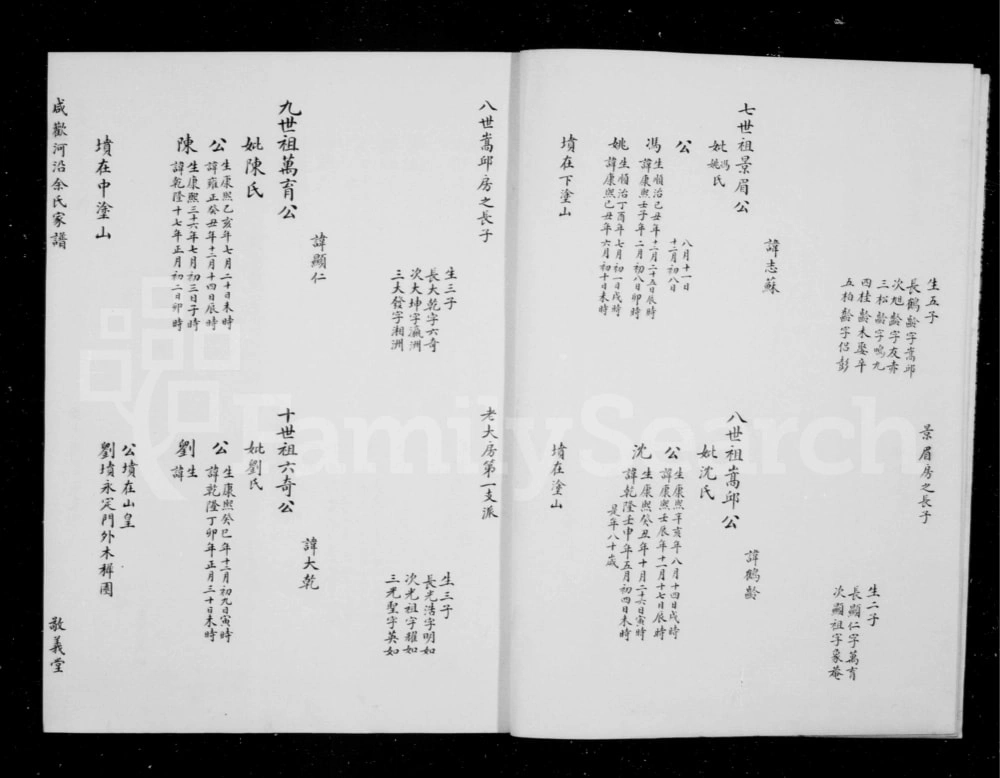 七世祖景眉公
妣馮姚氏
諱志蘇
生五子
長鶴齡字嵩邱
次旭齡字友赤
三松齡字鳴九
四桂齡未娶卒
五柏齡字侶彭
公
八月十一日
十二月初八日
馮
生順治己丑年十二月二十五日辰時
諱康熙壬子年二月初八日卯時
姚
生順治丁酉年七月初一日戌時
諱康熙己丑年六月初十日未時
墳在下塗山
景眉房之長子
八世祖嵩邱公
妣沈氏
諱鶴齡
生二子
長顯仁字萬育
次顯祖字象菴
公
生康熙辛亥年八月十四日戌時
諱康熙壬辰年十一月十七日辰時
沈
生康熙癸丑年十月二十六日寅時
諱乾隆壬申年五月初四日未時
是年八十歲
墳在塗山
八世嵩邱房之長子
九世祖萬育公
妣陳氏
諱顯仁
生三子
長大乾字六奇
次大坤字瀛洲
三大發字湘洲
公
生康熙乙亥年七月二十日未時
諱雍正癸丑年十二月十四日辰時
陳
生康熙三十六年七月初三日子時
諱乾隆十七年正月初二日卯時
墳在中塗山
老大房第一支派
十世祖六奇公
妣劉氏
諱大乾
生三子
長光浩字明如
次光祖字耀如
三光聖字英如
公
生康熙癸巳年十二月初九日寅時
諱乾隆丁卯年正月三十日未時
劉
生
諱
公墳在山皇
劉墳永定門外木樨園
咸歡河沿余氏家譜
敬義堂
FamilySearch